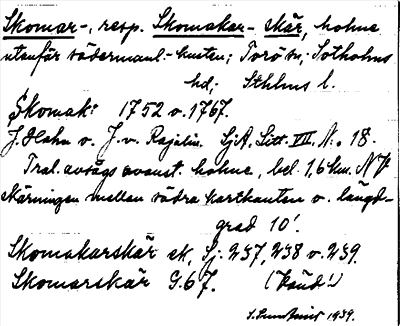 Skomar-, resp. Skomakar-skär, holme
utanför södermanl.-kusten; Torö sn; Sotholms
hd; Sthlms l.
Skomak: 1752 o. 1767.
J. Hahn o. J. v. Rajalin. SjA, Litt. VII. N:o 18.
Tral. avsågs avanst. holme, bel. 1,6 km. NV
skärningen mellan södra kartkanten o. längd-
grad 10'.
Skomakarskär ek, Sj: 237, 238 o. 239.
Skomarskär G. 67. (Länd!)
1939.